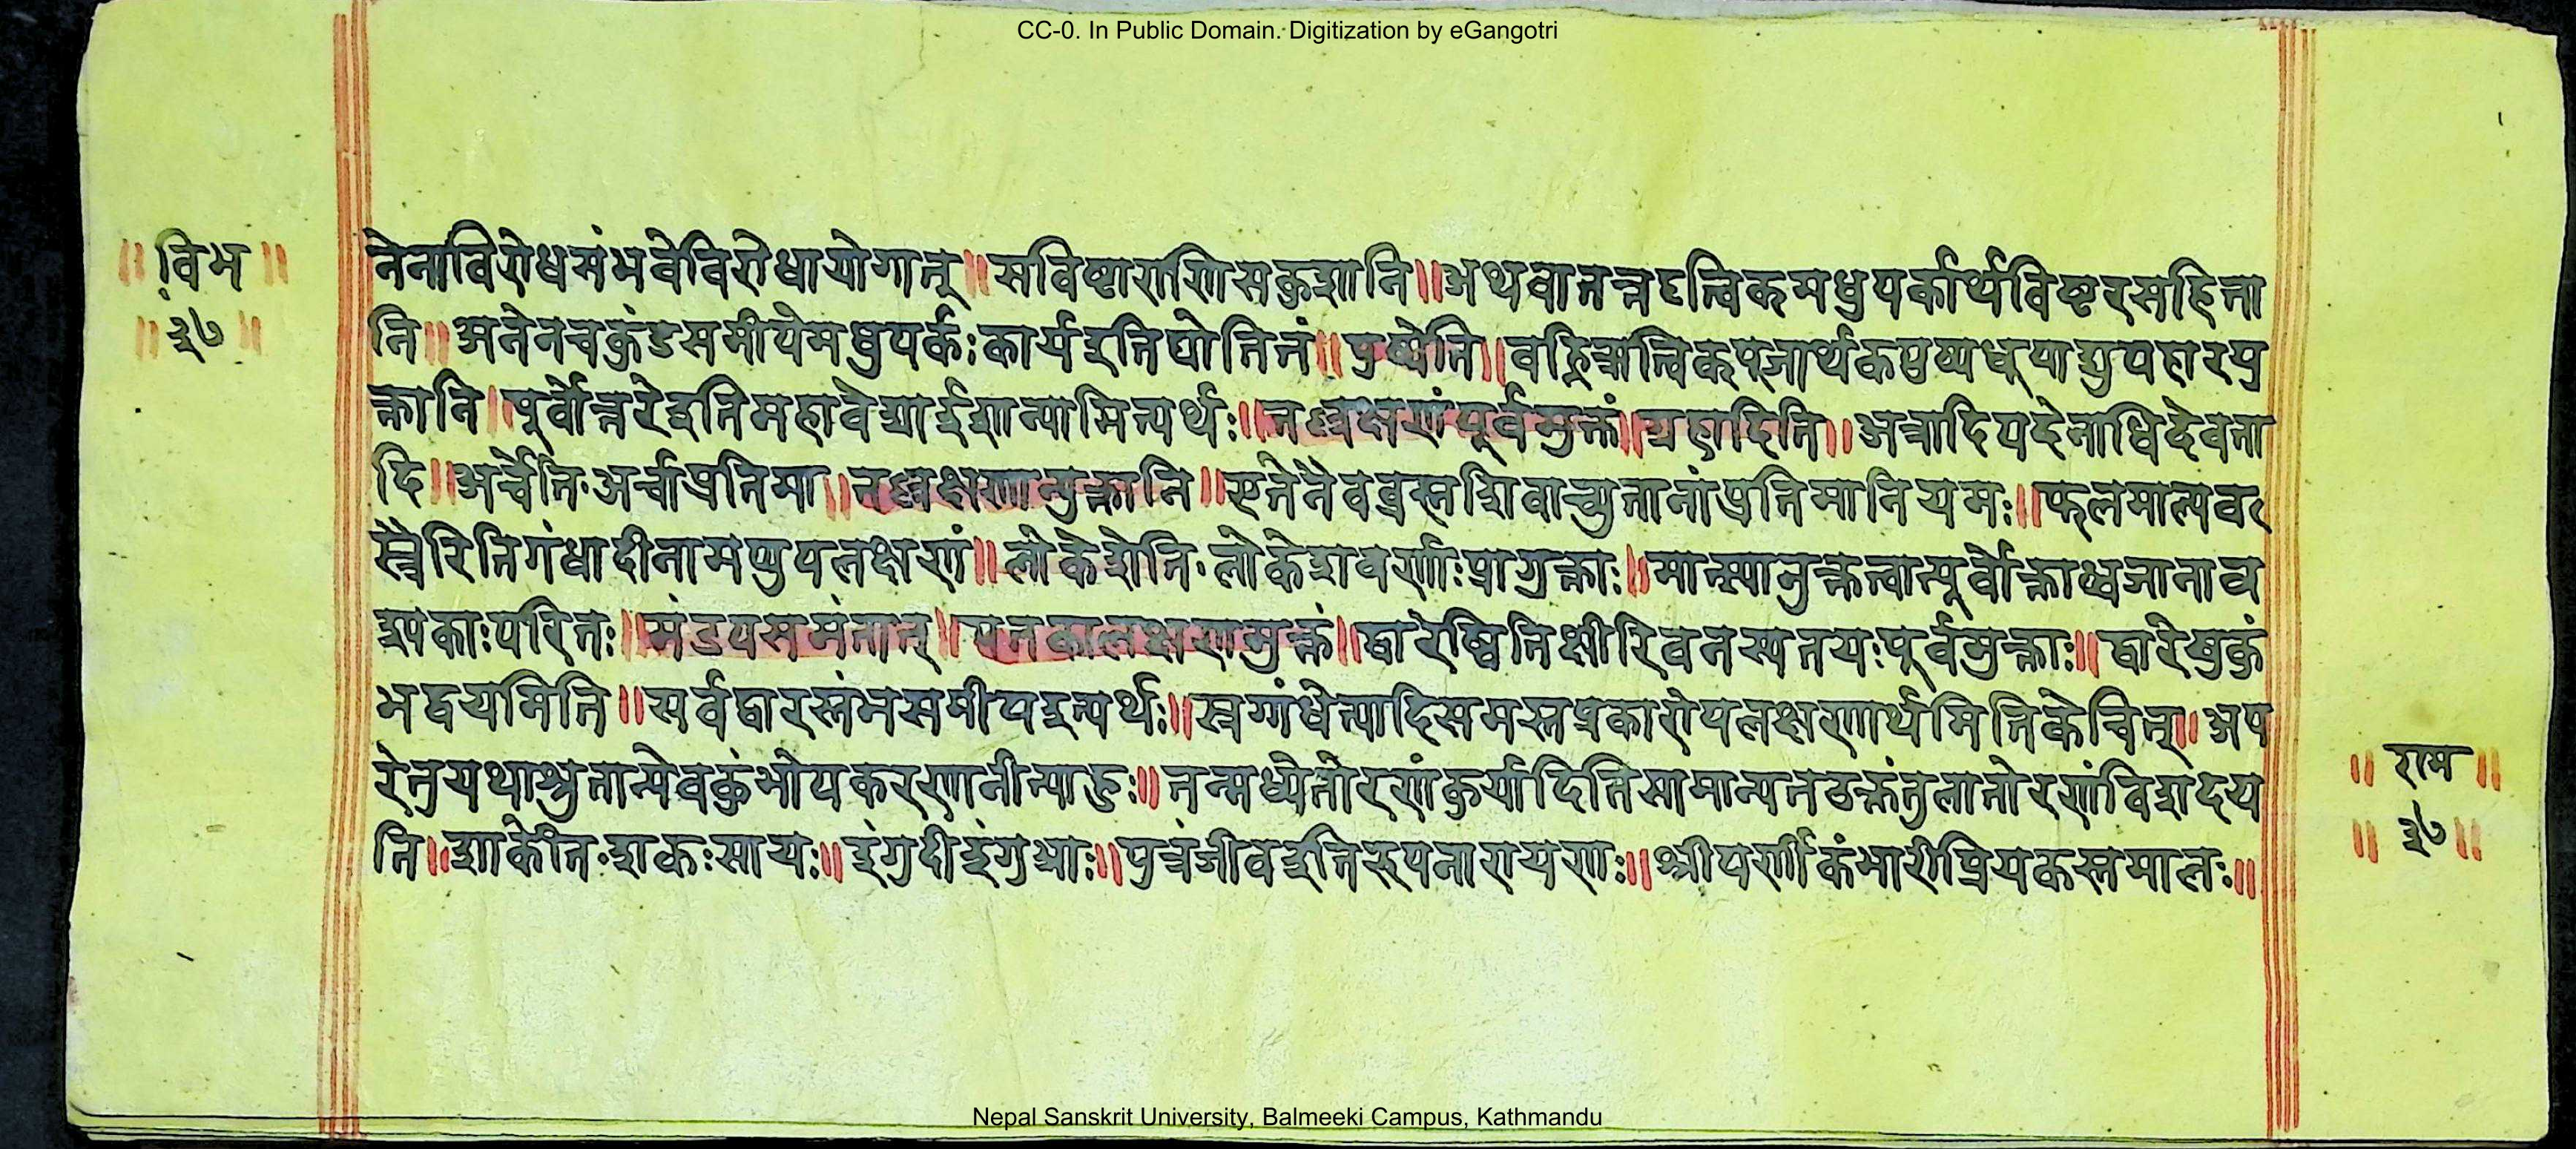 CC-0. In Public Domain. Digitization by eGangotri
॥ विभ ॥
॥ ३७ ॥
तेनाविरोधसंभवेविरोधायोगात् ॥ सविष्टाराणिसकुशानि ॥ अथवातत्तदृत्विकमधुपर्कार्थविष्टरसहिता
नि ॥ अनेनचकुंडसमीपेमधुपर्कःकार्यइतिद्योतितं ॥ पुष्पेति ॥ वह्निऋत्विक्पूजार्थकपुष्पधूपाद्युपहारयु
क्तानि ॥ पूर्वोत्तरेइतिमहावेद्याईशान्यामित्यर्थः ॥ तल्लक्षणंपूर्वमुक्तं ॥ ग्रहादिति ॥ अत्रादिपदेनाधिदेवता
दि ॥ अर्चेति·अर्चाप्रतिमा ॥ तल्लक्षणान्युक्तानि ॥ एतेनैवब्रह्मशिवाच्युतानांप्रतिमानियमः ॥ फलमाल्यव
स्त्रैरितिगंधादीनामप्युपलक्षणं ॥ लोकेशेति·लोकेशवर्णाःप्रागुक्ताः ॥ मात्स्यानुक्तत्वात्पूर्वोक्ताध्वजानाव
श्यकाःपरितः ॥ मंडपसमंतात् ॥ पताकालक्षणमुक्तं ॥ द्वारेष्वितिक्षीरिवनस्पतयःपूर्वमुक्ताः ॥ द्वारेषुकुं
भद्वयमिति ॥ सर्वद्वारस्तंभसमीपइत्यर्थः ॥ स्रग्गंधेत्यादिसमस्तप्रकारोपलक्षणार्थमितिकेचित् ॥ अप
रेतुयथाश्रुतान्येवकुंभोपकरणानीत्याहुः ॥ तन्मध्येतोरणंकुर्यादितिसामान्यतउक्तंतुलातोरणंविशदय
ति ॥ शाकेति·शाकःसायः ॥ इंगुदीइंगुआः ॥ पुत्रंजीवइतिरूपनारायणः ॥ श्रीपर्णीकंभारीप्रियकस्तमालः ॥
॥ राम ॥
॥ ३७ ॥
Nepal Sanskrit University, Balmeeki Campus, Kathmandu